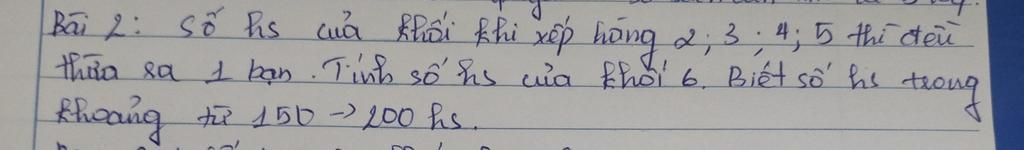 Bài 2: Số hs của khối khi xếp hàng 2; 3; 4; 5 thì đều
thừa ra 1 bạn. Tính số hs của khối 6. Biết số hs trong
khoảng từ 150 → 200 hs.